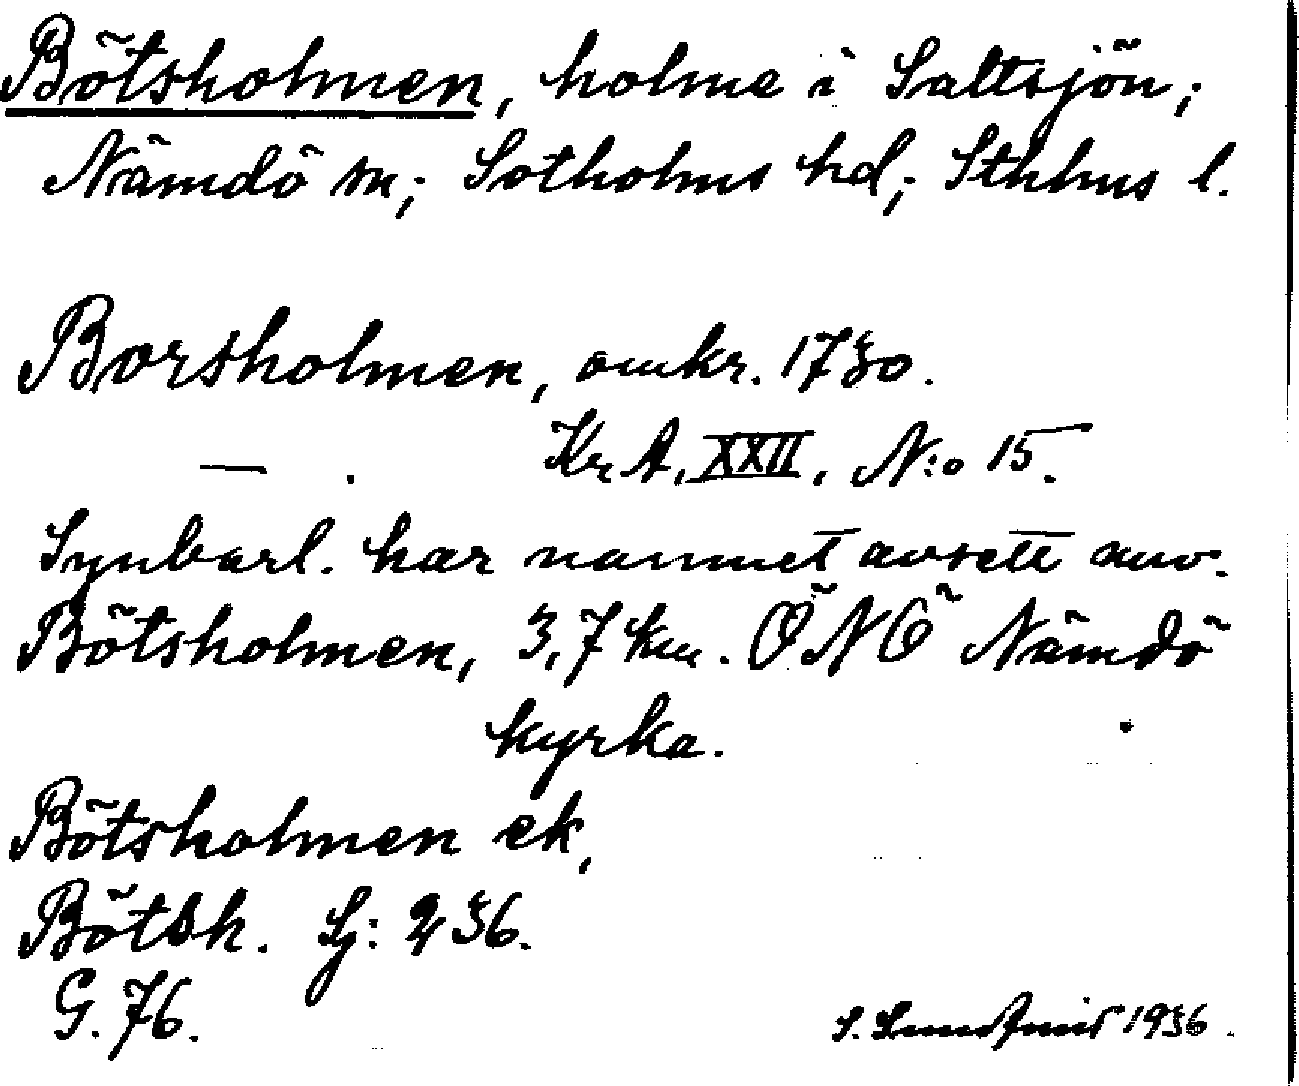 Bötsholmen, holme i Saltsjön;
Nämdö sn; Sotholms hd; Sthlms l.
Borsholmen, omkr. 1730.
— . Kr A, XXII, N:o 15.
Synbarl. har namnet avsett nuv.
Bötsholmen, 3,7 km. ÖNÖ Nämdö
kyrka.
Bötsholmen ek,
Bötsh. Sj: 236.
G. 76.
S. 1936.